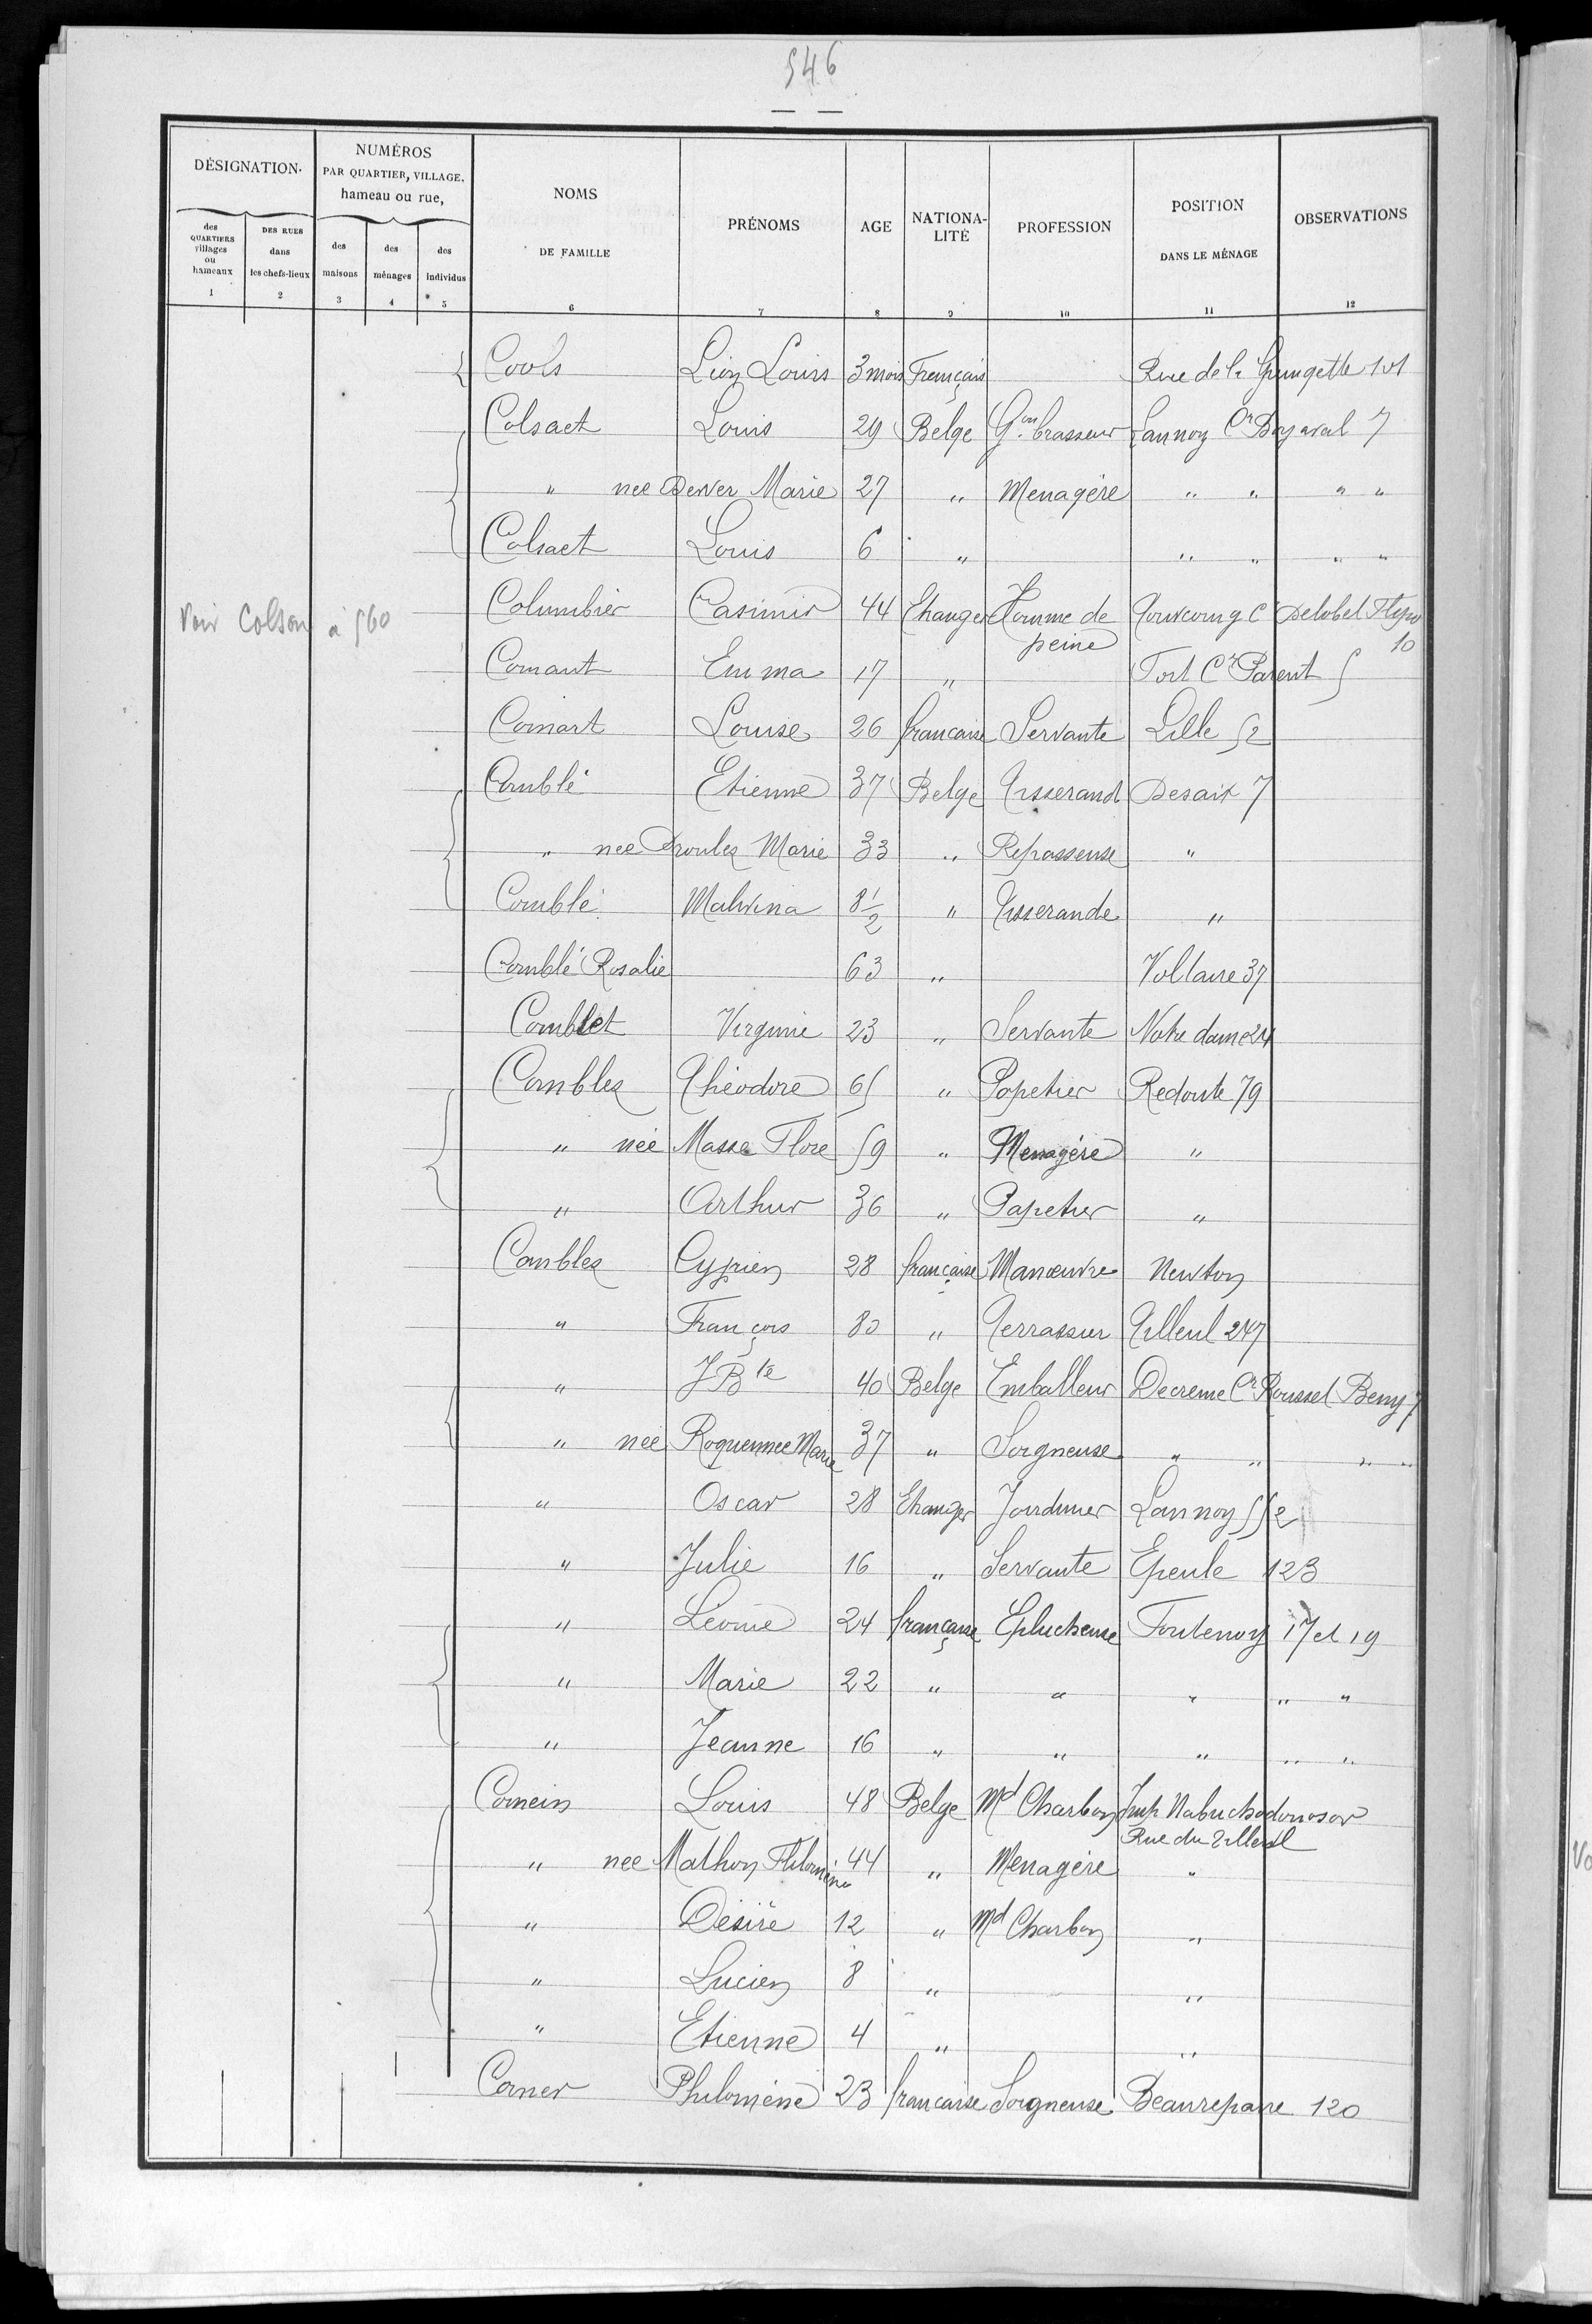 546
DÉSIGNATION. NUMÉROS PAR QUARTIER, VILLAGE, hameau ou rue, NOMS DE FAMILLE PRÉNOMS AGE NATIONA-LITÉ PROFESSION POSITION DANS LE MÉNAGE OBSERVATIONS
des QUARTIERS villages ou hameaux DES RUES dans les chefs-lieux des maisons des ménages des individus
1 2 3 4 5 6 7 8 9 10 11 12
Cools Léon Louis 3 mois Français Rue de la 101
Colsaet Louis 29 Belge Gon brasseur Lannoy Cr Doyaval 7
" née Marie 27 " Menagère " " " "
Colsaet Louis 6 " " " " "
Voir Colson à 560
Columbier Casimir 44 Etranger Homme de peine Tourcoing Cr Delobel 10
Comant Emma 17 " Fort Cr Parent 5
Comart Louise 26 francaise Servante Lille 52
Comblé Etienne 37 Belge Tisserand Desaix 7
" née Droulez Marie 33 " Repasseuse "
Comblé Malvina 8 1/2 " Tisserande "
Comblé Rosalie 63 " Voltaire 37
Comblet Virginie 23 " Servante Notre dame 24
Comblez Théodore 65 " Papetier Redoute 79
" née Masse Flore 59 " Menagère "
" Arthur 36 " Papetier "
Comblez Cyprien 28 française Manœuvre Newton
" François 80 " Terrassier Tilleul 247
" J Bte 40 Belge Emballeur Decreme Cr Roussel 7
" née Marie 37 " Soigneuse " " " "
" Oscar 28 Etranger Jardinier Lannoy 552
" Julie 16 " Servante Epeule 123
" Léonie 24 française Eplucheuse Fontenoy 17 et 19
" Marie 22 " " " " "
" Jeanne 16 " " " " "
Comein Louis 48 Belge Md Charbon Imp Nabuchodonosor
Rue du Tilleul
" née Mathon Philomène 44 " Menagère "
" Désiré 12 " Md Charbon "
" Lucien 8 " "
" Etienne 4 " "
Comer Philomène 23 francaise Soigneuse Beaurepaire 120